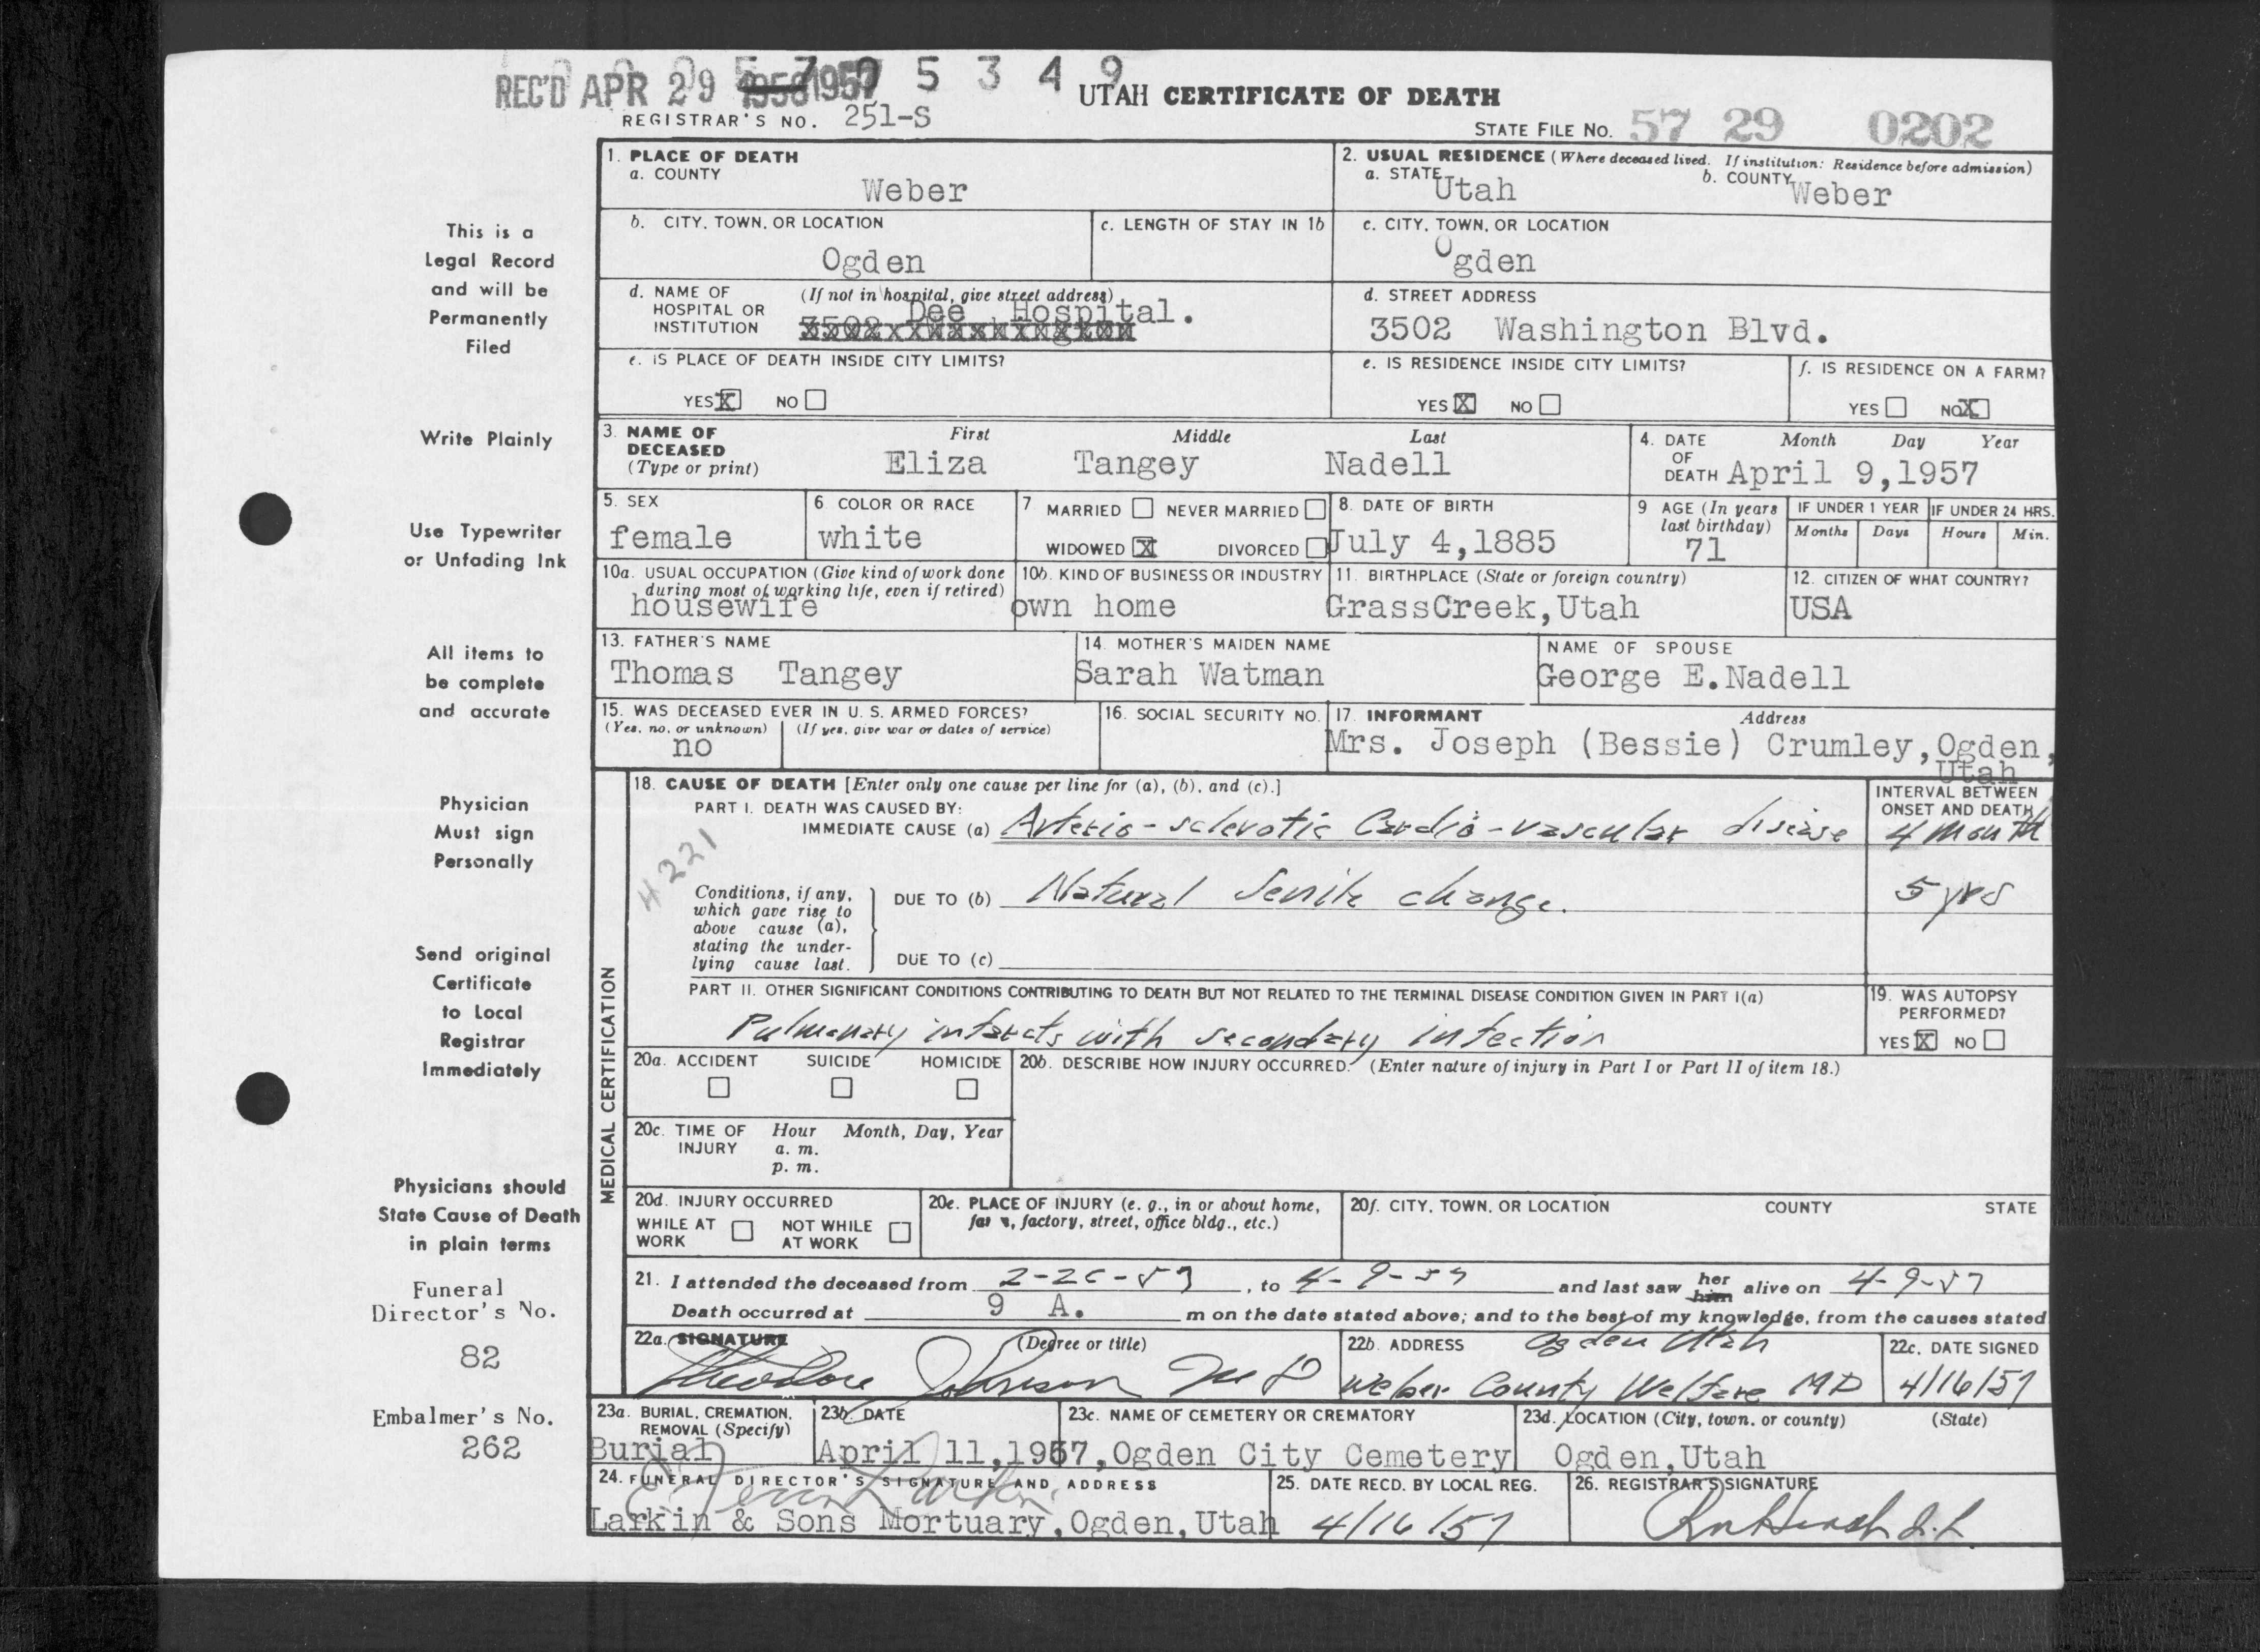 REC'D APR 29 1957 5 3 4 9
UTAH CERTIFICATE OF DEATH
REGISTRAR'S NO. 251-S
STATE FILE NO. 57 29 0202
1. PLACE OF DEATH
a. COUNTY
Weber
2. USUAL RESIDENCE (Where deceased lived. If institution: Residence before admission)
a. STATE Utah b. COUNTY Weber
b. CITY, TOWN, OR LOCATION
Ogden
c. LENGTH OF STAY IN 1b
c. CITY, TOWN, OR LOCATION
Ogden
d. NAME OF HOSPITAL OR INSTITUTION
(If not in hospital, give street address)
Dee Hospital.
d. STREET ADDRESS
3502 Washington Blvd.
e. IS PLACE OF DEATH INSIDE CITY LIMITS?
YES X NO
e. IS RESIDENCE INSIDE CITY LIMITS?
YES X NO
f. IS RESIDENCE ON A FARM?
YES NO X
3. NAME OF DECEASED (Type or print)
First Middle Last
Eliza Tangey Nadell
4. DATE OF DEATH
Month Day Year
April 9,1957
5. SEX
female
6 COLOR OR RACE
white
7 MARRIED NEVER MARRIED
WIDOWED X DIVORCED
8. DATE OF BIRTH
July 4,1885
9 AGE (In years last birthday)
71
IF UNDER 1 YEAR
Months Days
IF UNDER 24 HRS.
Hours Min.
10a. USUAL OCCUPATION (Give kind of work done during most of working life, even if retired)
housewife
10b. KIND OF BUSINESS OR INDUSTRY
own home
11. BIRTHPLACE (State or foreign country)
GrassCreek,Utah
12. CITIZEN OF WHAT COUNTRY?
USA
13. FATHER'S NAME
Thomas Tangey
14. MOTHER'S MAIDEN NAME
Sarah Watman
NAME OF SPOUSE
George E.Nadell
15. WAS DECEASED EVER IN U. S. ARMED FORCES?
(Yes, no, or unknown) (If yes, give war or dates of service)
no
16. SOCIAL SECURITY NO.
17. INFORMANT Address
Mrs. Joseph (Bessie) Crumley,Ogden,
Utah
MEDICAL CERTIFICATION
18. CAUSE OF DEATH [Enter only one cause per line for (a), (b), and (c).]
PART I. DEATH WAS CAUSED BY:
IMMEDIATE CAUSE (a) Arterio-sclerotic Cardio-vascular disease
INTERVAL BETWEEN ONSET AND DEATH
4 month
4221
Conditions, if any, which gave rise to above cause (a), stating the underlying cause last.
DUE TO (b) Natural Senile change.
5 yrs
DUE TO (c)
PART II. OTHER SIGNIFICANT CONDITIONS CONTRIBUTING TO DEATH BUT NOT RELATED TO THE TERMINAL DISEASE CONDITION GIVEN IN PART I(a)
Pulmonary infarcts with secondary infection
19. WAS AUTOPSY PERFORMED?
YES X NO
20a. ACCIDENT SUICIDE HOMICIDE
20b. DESCRIBE HOW INJURY OCCURRED. (Enter nature of injury in Part I or Part II of item 18.)
20c. TIME OF INJURY
Hour Month, Day, Year
a. m.
p. m.
20d. INJURY OCCURRED
WHILE AT WORK NOT WHILE AT WORK
20e. PLACE OF INJURY (e. g., in or about home, farm, factory, street, office bldg., etc.)
20f. CITY, TOWN, OR LOCATION COUNTY STATE
21. I attended the deceased from , to 4-9-57 and last saw her him alive on 4-9-57
Death occurred at 9 A. m on the date stated above; and to the best of my knowledge, from the causes stated
22a. SIGNATURE (Degree or title)
Theodore Johnson MD
22b. ADDRESS Ogden Utah
Weber County Welfare MD
22c. DATE SIGNED
4/16/57
23a. BURIAL, CREMATION, REMOVAL (Specify)
Burial
23b. DATE
April 11,1957,
23c. NAME OF CEMETERY OR CREMATORY
Ogden City Cemetery
23d. LOCATION (City, town, or county) (State)
Ogden,Utah
24. FUNERAL DIRECTOR'S SIGNATURE AND ADDRESS
Larkin & Sons Mortuary,Ogden,Utah
25. DATE RECD. BY LOCAL REG.
4/16/57
26. REGISTRAR'S SIGNATURE
This is a
Legal Record
and will be
Permanently
Filed
Write Plainly
Use Typewriter
or Unfading Ink
All items to
be complete
and accurate
Physician
Must sign
Personally
Send original
Certificate
to Local
Registrar
Immediately
Physicians should
State Cause of Death
in plain terms
Funeral
Director's No.
82
Embalmer's No.
262